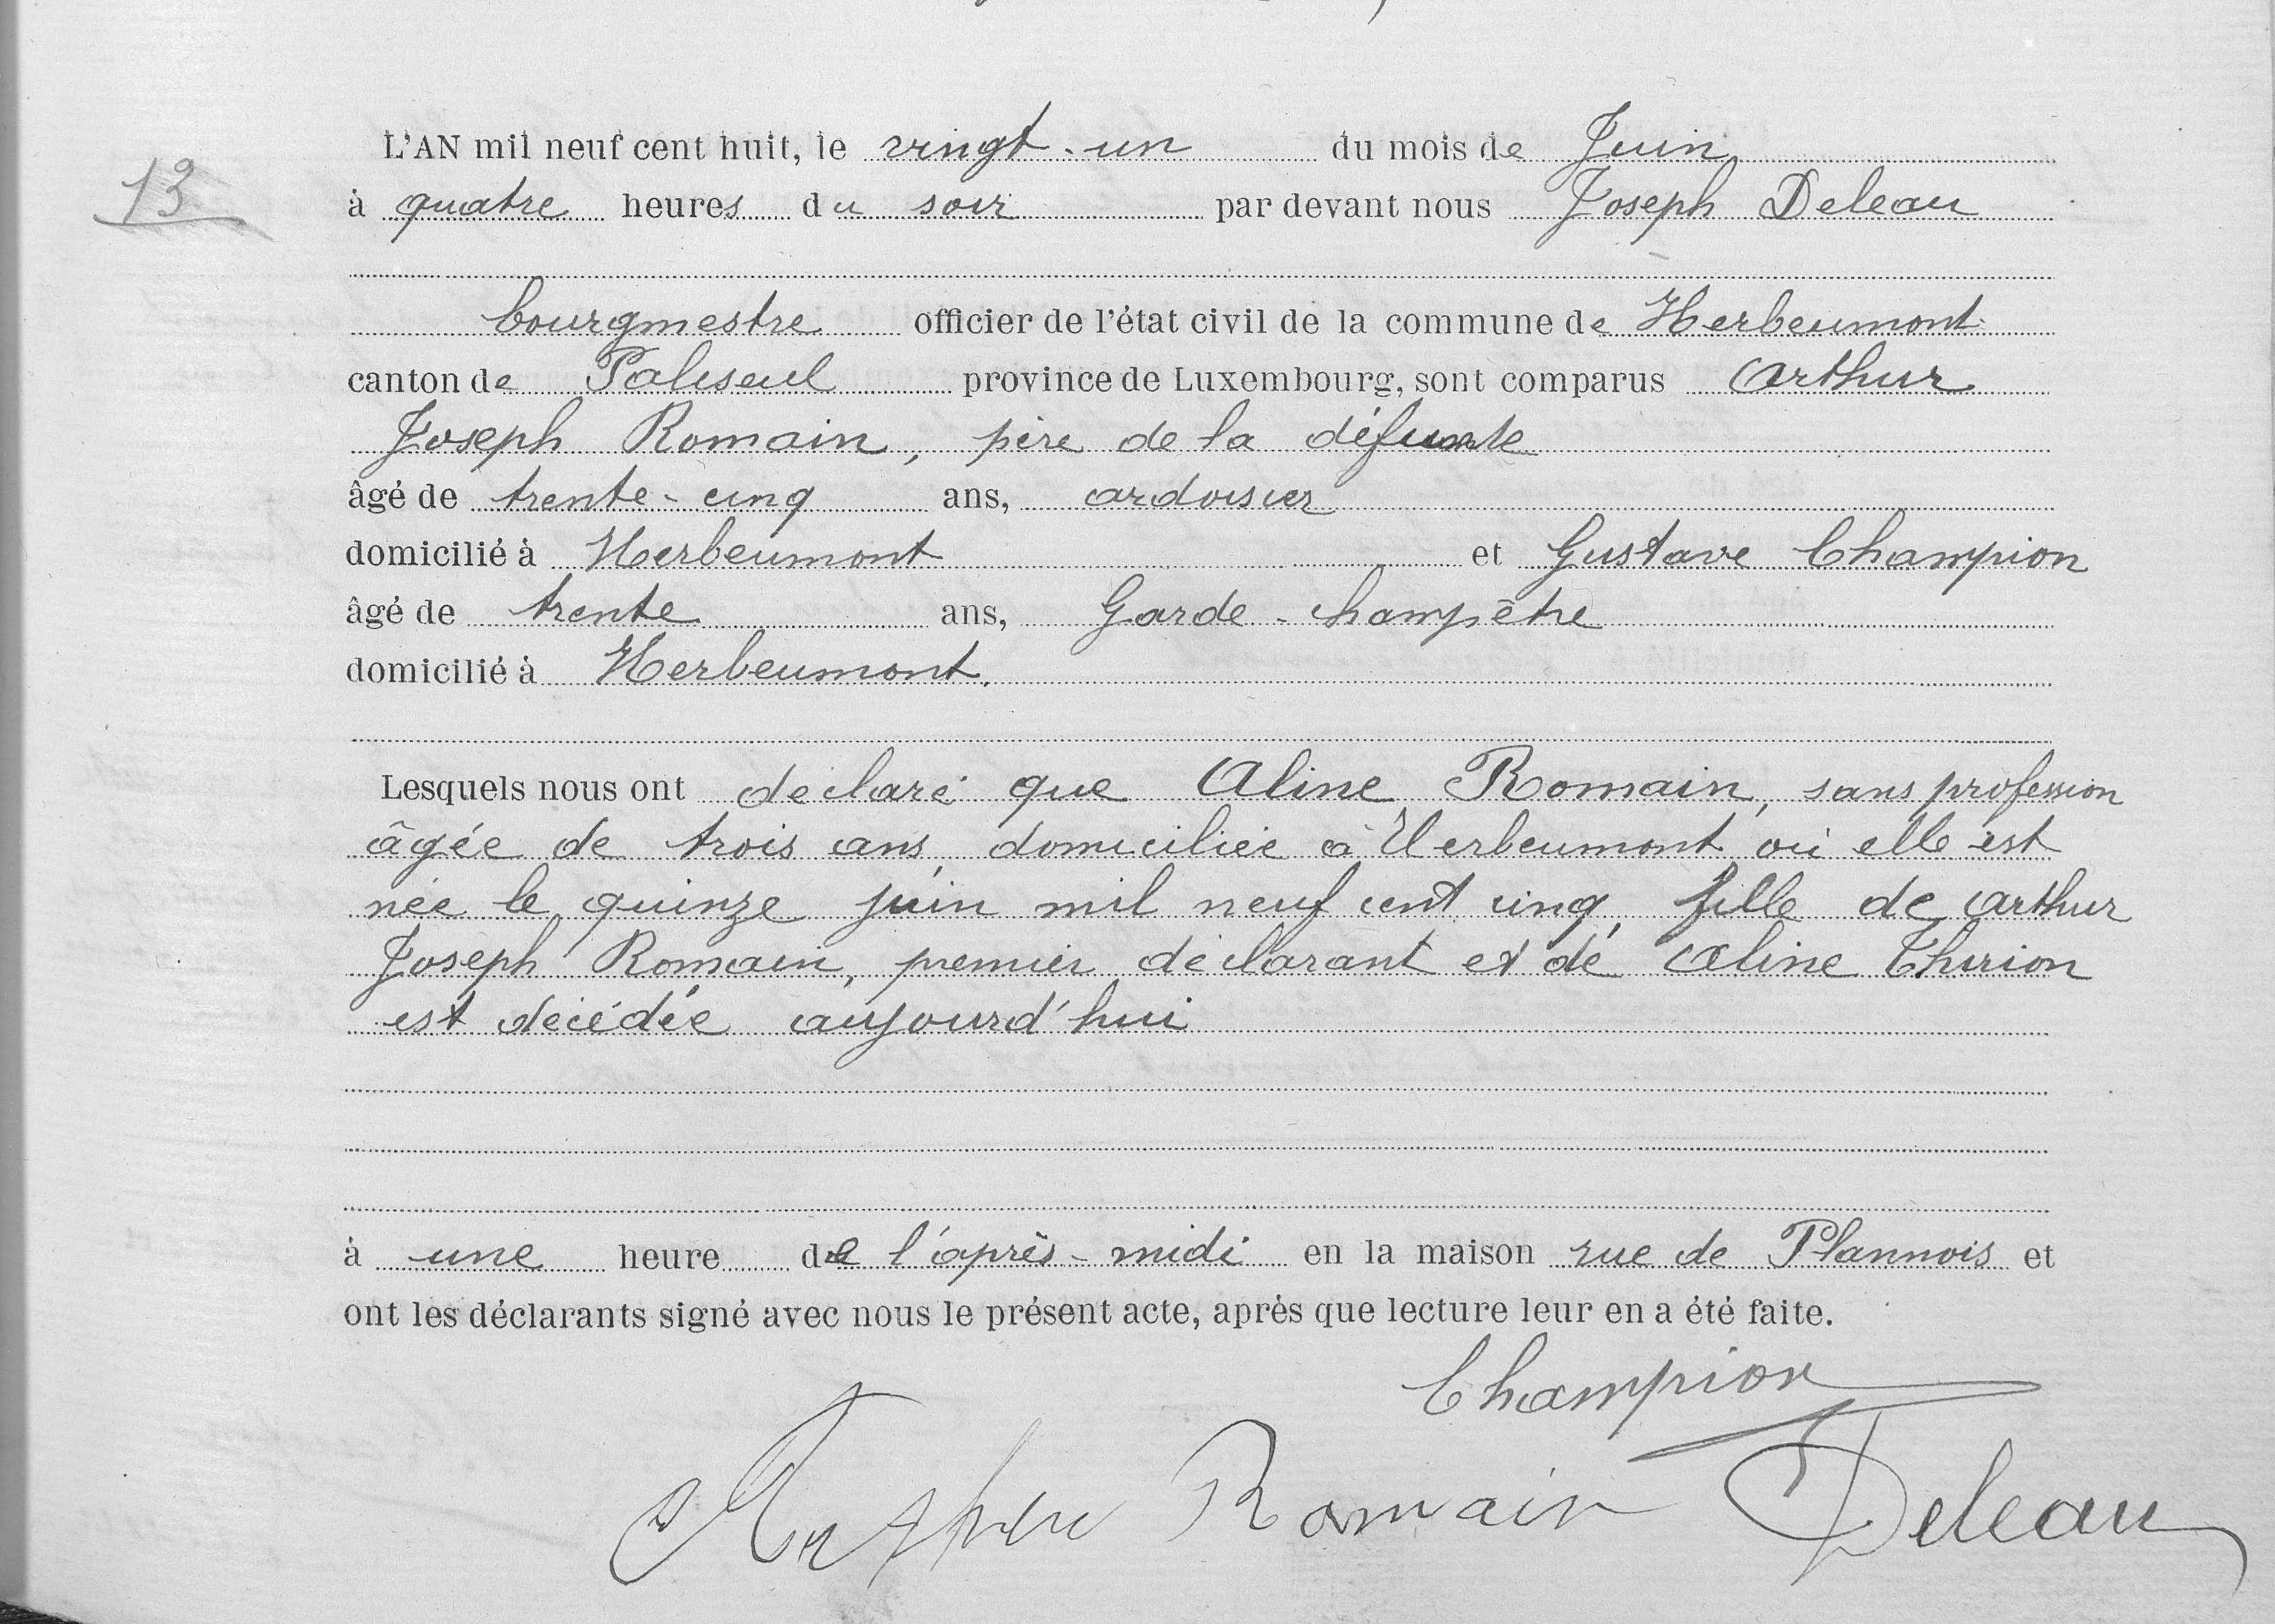 13
L'AN mil neuf cent huit, le vingt-un du mois de Juin
à quatre heures du soir par devant nous Joseph Deleau
bourgmestre officier de l'état civil de la commune de Herbeumont
canton de Paliseul province de Luxembourg, sont comparus Arthur
Joseph Romain, père de la défunte
âgé de trente-cinq ans, ardoisier
domicilié à Herbeumont et Gustave Champion
âgé de trente ans, Garde-champêtre
domicilié à Herbeumont.
Lesquels nous ont déclaré que Aline Romain, sans profession
âgée de trois ans, domiciliée à Herbeumont où elle est
née le quinze juin mil neuf cent cinq, fille de Arthur
Joseph Romain, premier déclarant et de Aline Thirion
est décédée aujourd'hui
à une heure de l'après-midi en la maison rue de Plannois et
ont les déclarants signé avec nous le présent acte, après que lecture leur en a été faite.
Champion
Arthur Romain Deleau